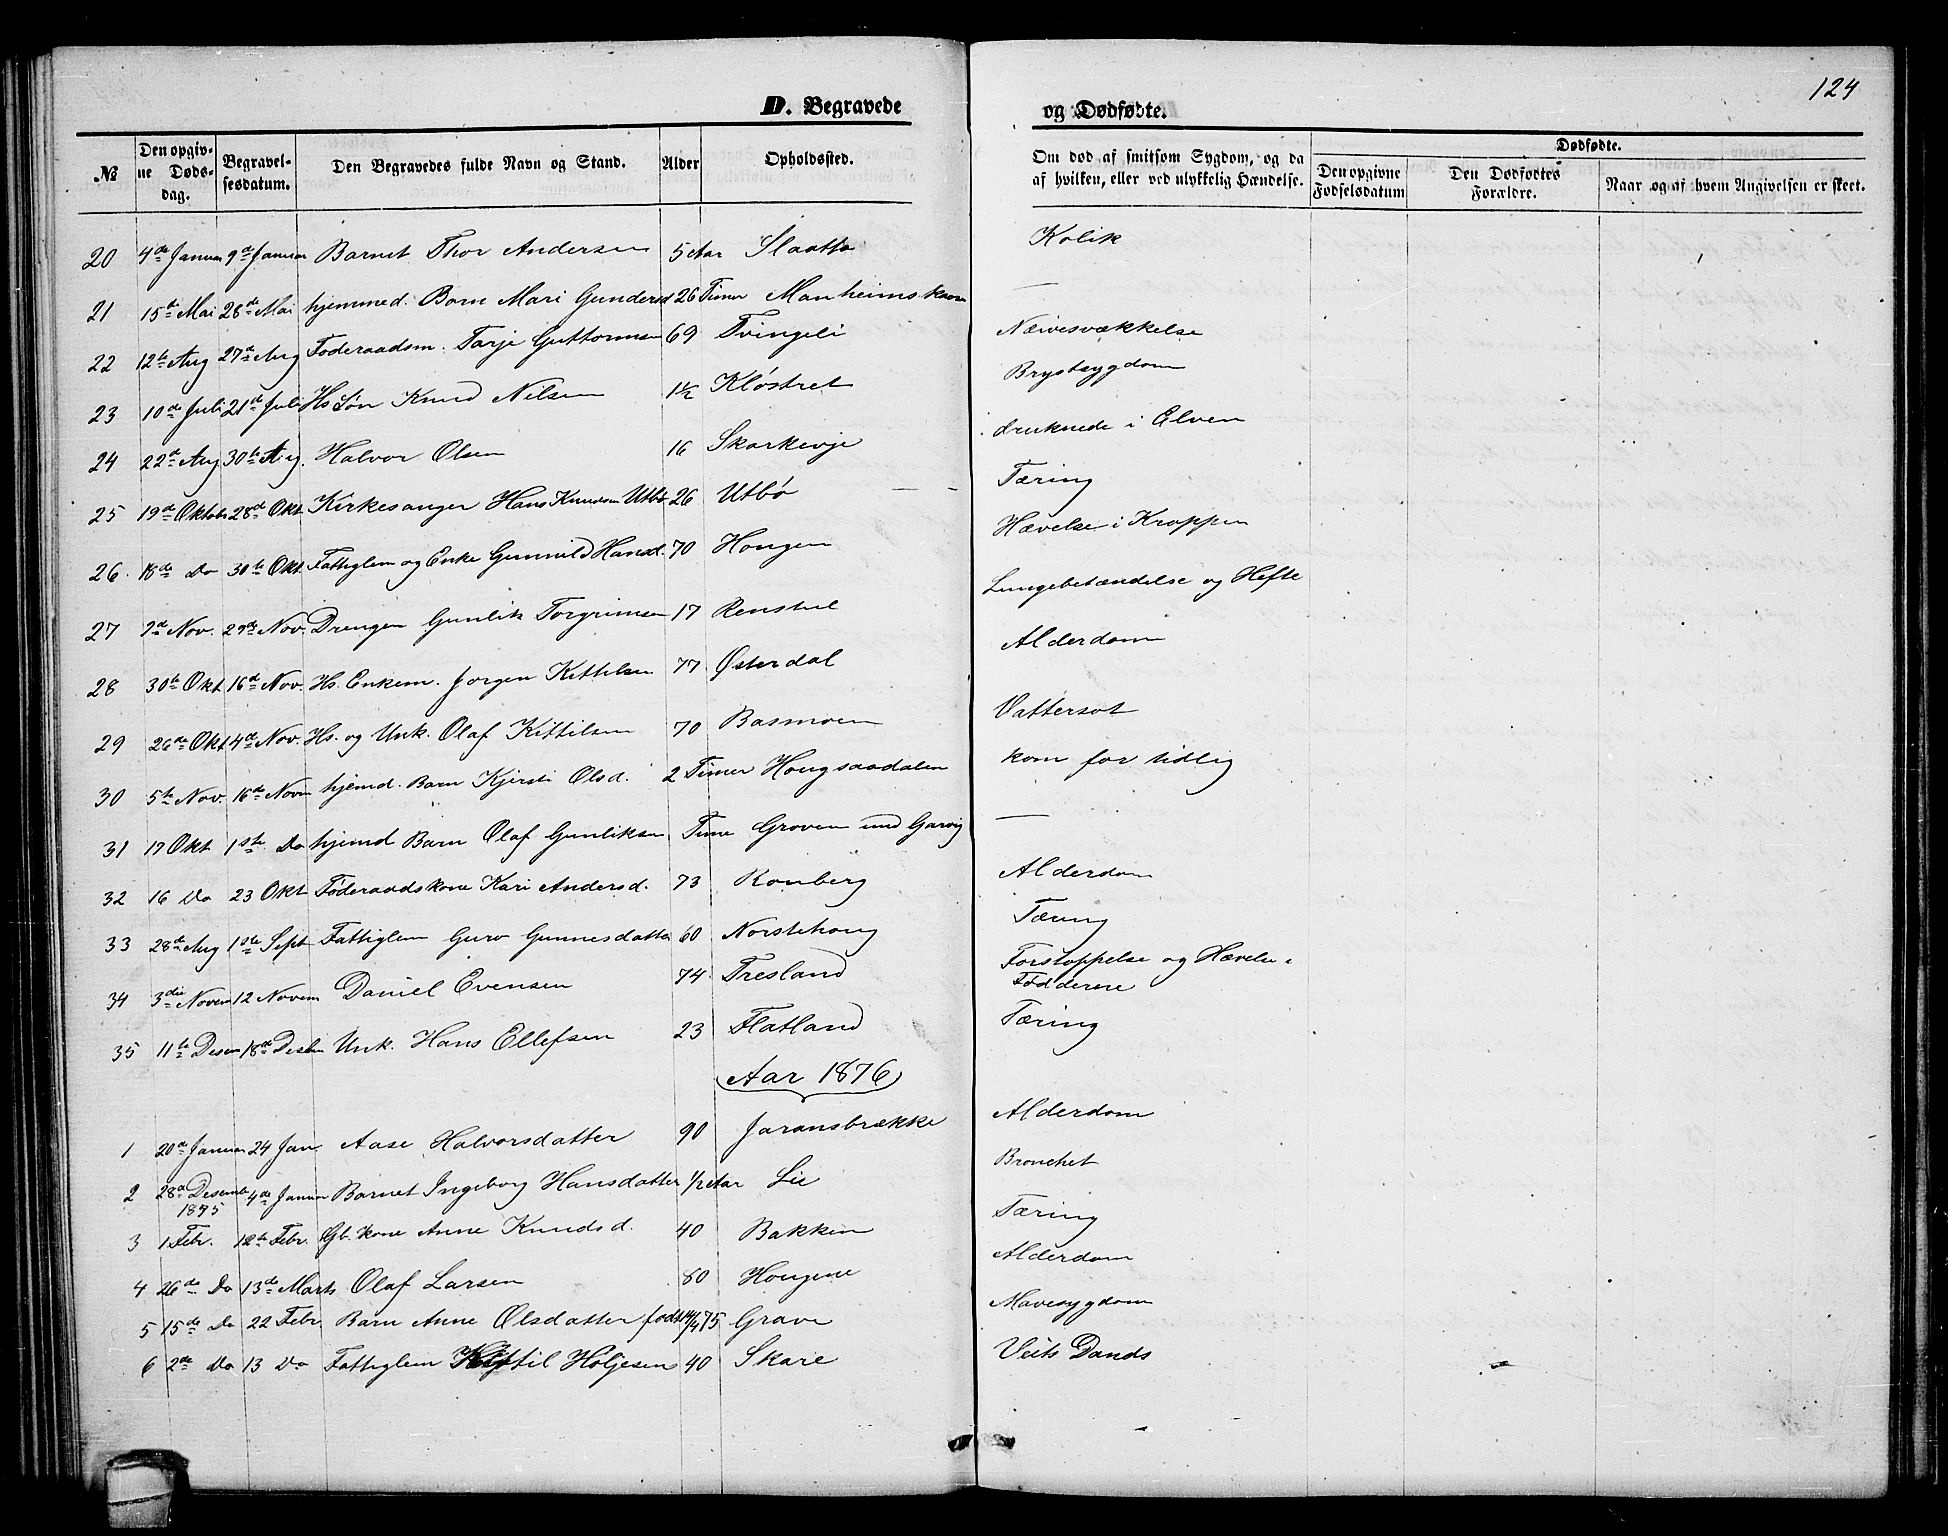 124
D. Begravede og Dødfødte.
№ Den opgivne Dødsdag. Begravelsesdatum. Den Begravedes fulde Navn og Stand. Alder Opholdssted. Om død af smitsom Sygdom, og da af hvilken, eller ved ulykkelig Hændelse. Dødfødte.
Den opgivne Fødselsdatum Den Dødfødtes Forældre. Naar og af hvem Angivelsen er skeet.
20 4de Januar 9de Januar Barnet Thor Andersen 5 Aar Slaatta Kolik
21 15de Mai 28de Mai hjemmed. Barn Mari Gundersd 26 Timer Manheims —
22 12te Aug 27de Aug Føderaadsm. Tarje Guttormsen 69 Tvingeli Nervesvækkelse
23 10de Juli 21de Juli Hs Søn Knud Nilsen 1½ Kløstret Brystsygdom
24 22de Aug 30te Aug. Halvor Olsen 16 Skarkevje druknede i Elven
25 19de Oktobr 28de Okt Kirkesanger Hans Knudsen Utbø 26 Utbø Tæring
26. 18de Do 30te Okt. Fattiglem og Enke Gunnild Hansd. 70 Hougen Hævelse i Kroppen
27 9de Nov. 29de Nov. Drengen Gunlik Torgrimsen 17 Renstul Lungebetændelse og Hefte
28 30te Okt 16de Nov. Hs. Enkem. Jørgen Kittilsen 77 Østerdal Alderdom
29 26de Okt 4de Nov. Hs. og Unk. Olaf Kittilsen 70 Basmoen Vattersot
30 5te Nov. 16de Novm hjemd. Barn Kjersti Olsd. 2 Timer Hougsaadalen kom for tidlig
31 17 Okt 1ste Do hjemd Barn Olaf Gunliksen Time Groven und Garvig —
32 16 Do 23 Okt Føderaadskone Kari Andersd. 73 Ronberg Alderdom
33 28de Aug 1ste Sept Fattiglem Guro Gunnesdatter 60 Norstehoug Tæring
34 3die Novem 12 Novem Daniel Evensen 74 Tresland Forstoppelse og Hævelse i
Fødderene
35 11te Desem 18de Desbr Unk. Hans Ellefsen 23 Flatland Tæring
Aar 1876
1 20de Januar 24 Jan. Aase Halvorsdatter 90 Jaransbrække Alderdom
2 28de Desemb 4de Januar Barnet Ingeborg Hansdatter 1/2 Aar Lie Bronchet
1875
3 1 Febr. 12te Febr. Gb. kone Anne Knudsd. 40 Bakken Tæring
4 26de Do 13de Marts Olaf Larsen 80 Hougene Alderdom
5 15de Do 22 Febr Barn Anne Olsdatter født 14/4 75 Grave Mavesygdom
6 2de Do 13 Do Fattiglem Kittil Høljesen 40 Skare Veits Dands